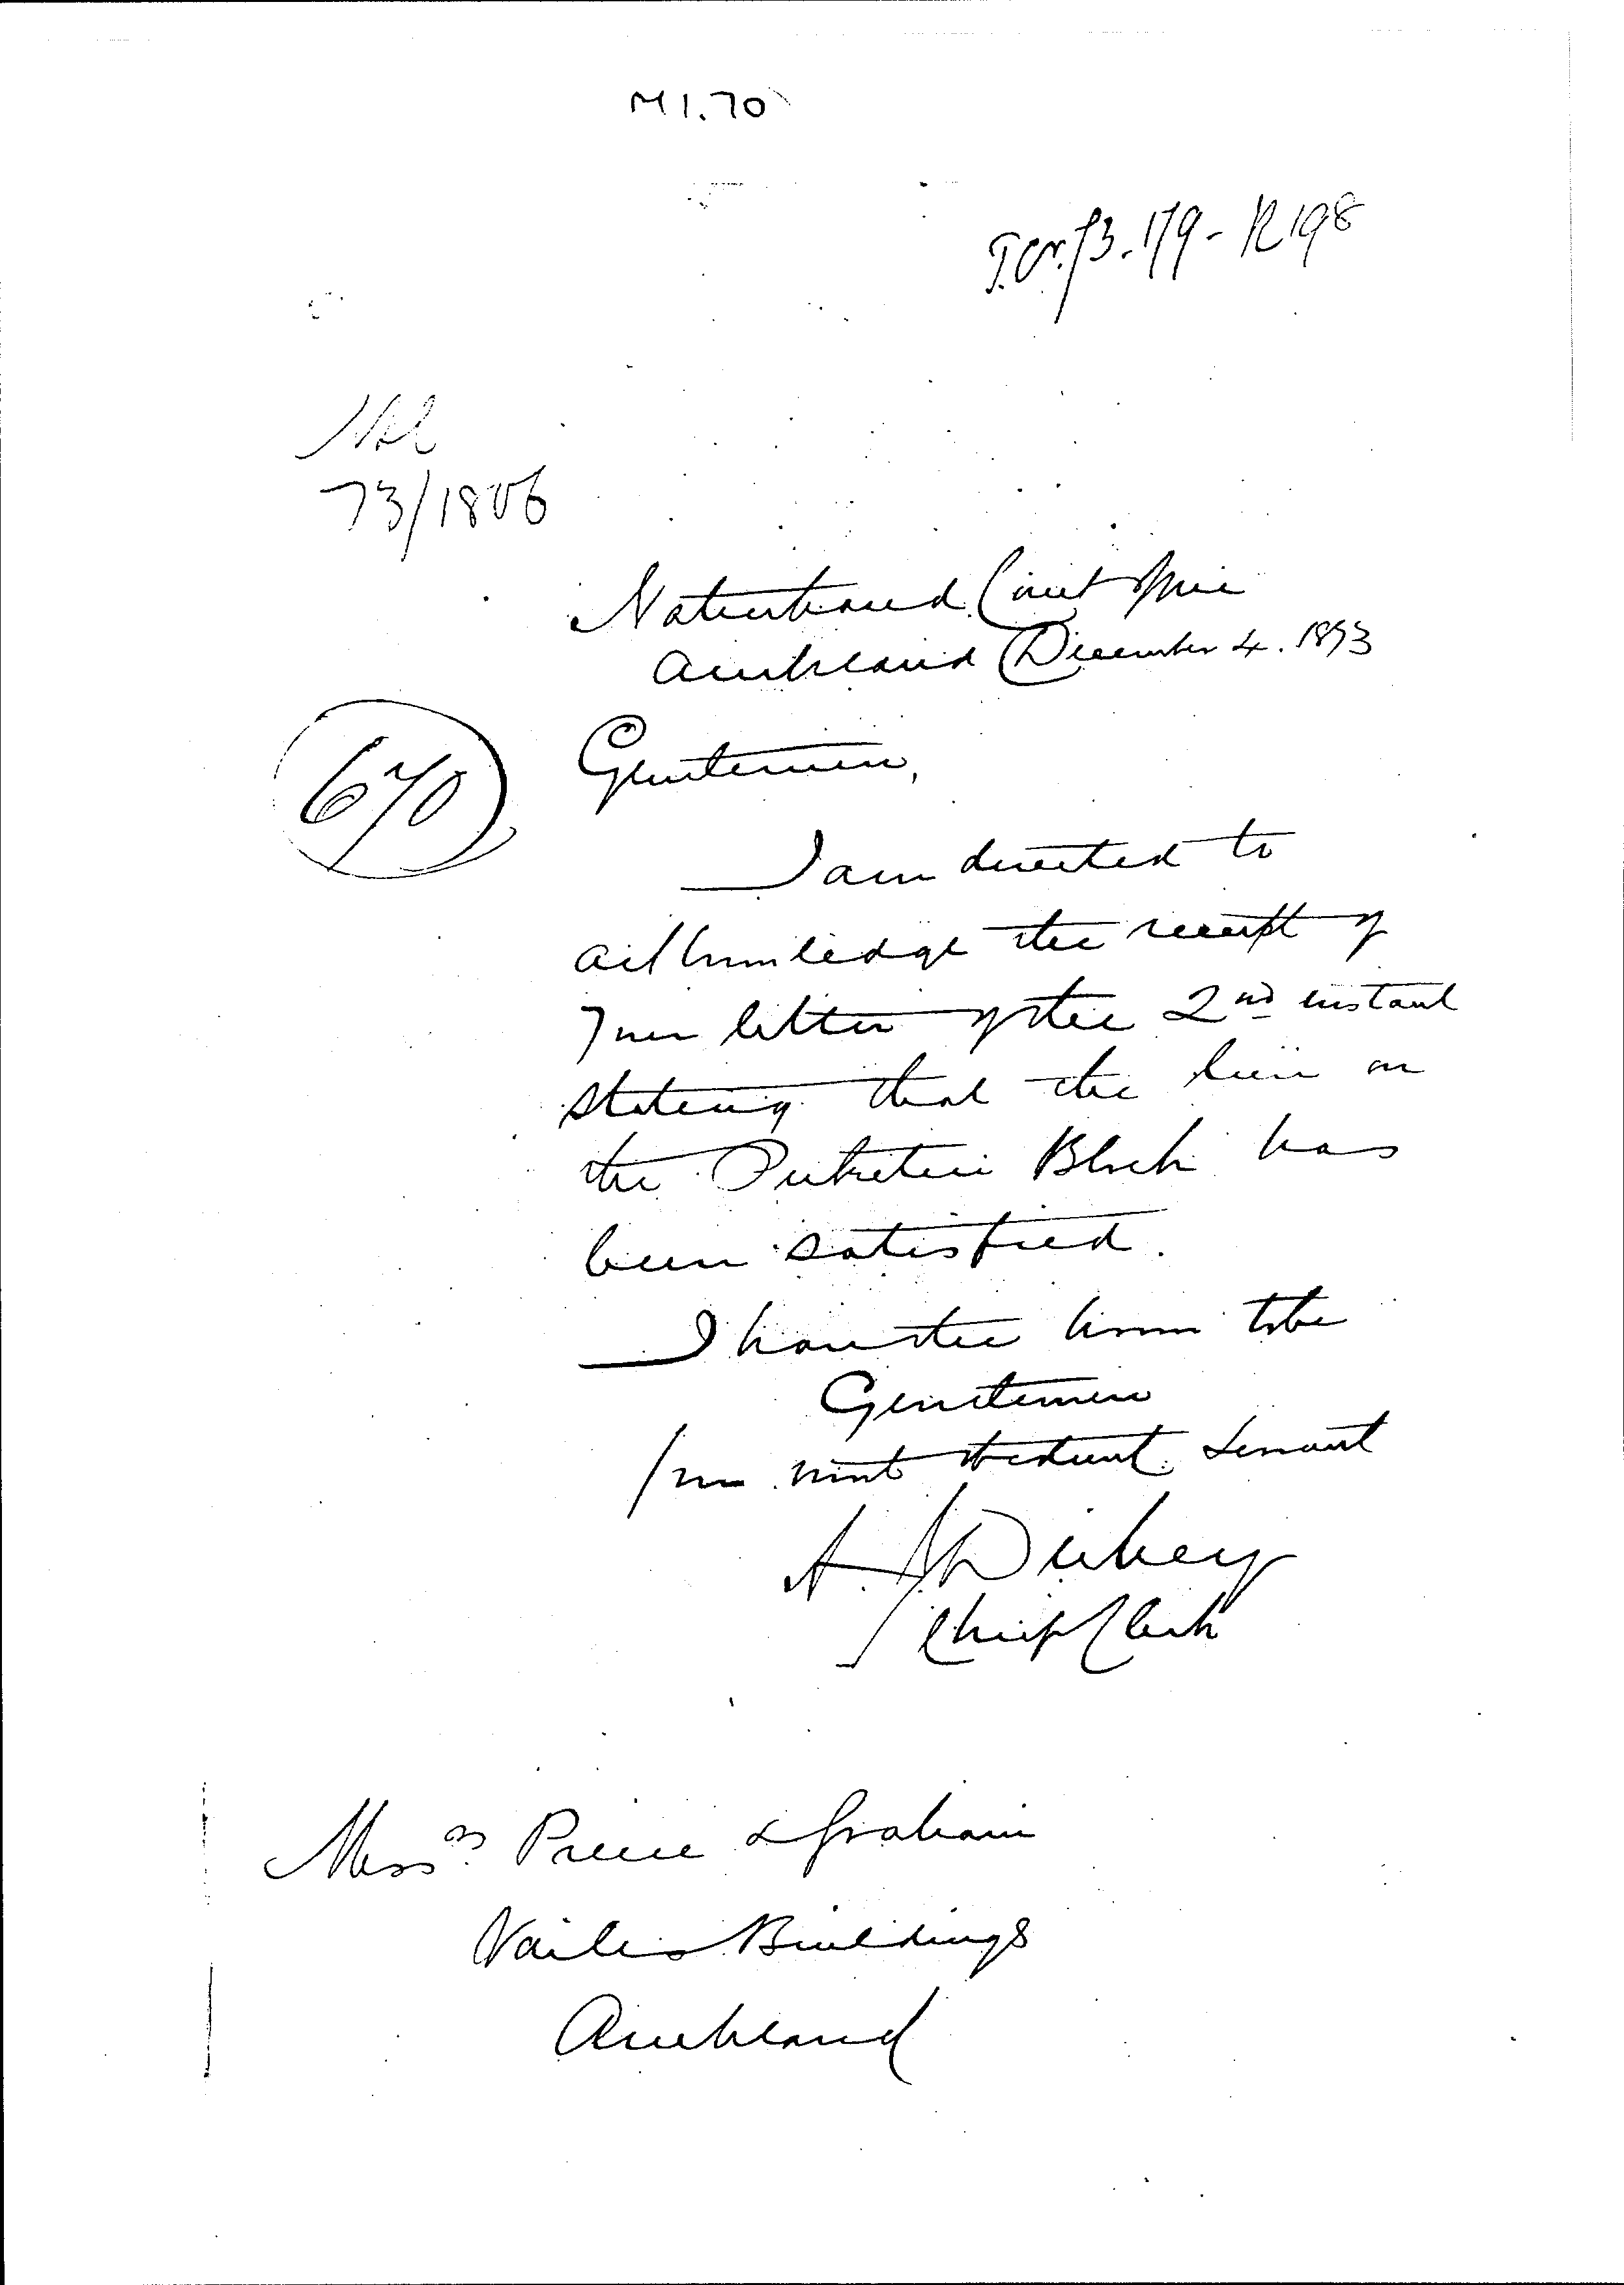 M1.70
T.Cr. f3.179 - R198
73/1806
Native Land Court Office
Auckland December 4. 1893
670
Gentlemen,
I am directed to
acknowledge the receipt of
your letter of the 2nd instant
stating that the lien on
the Puketiti Block has
been satisfied.
I have the honor to be
Gentlemen
Your most obedient servant
Chief Clerk
Messrs Preece & Graham
Vaile's Buildings
Auckland